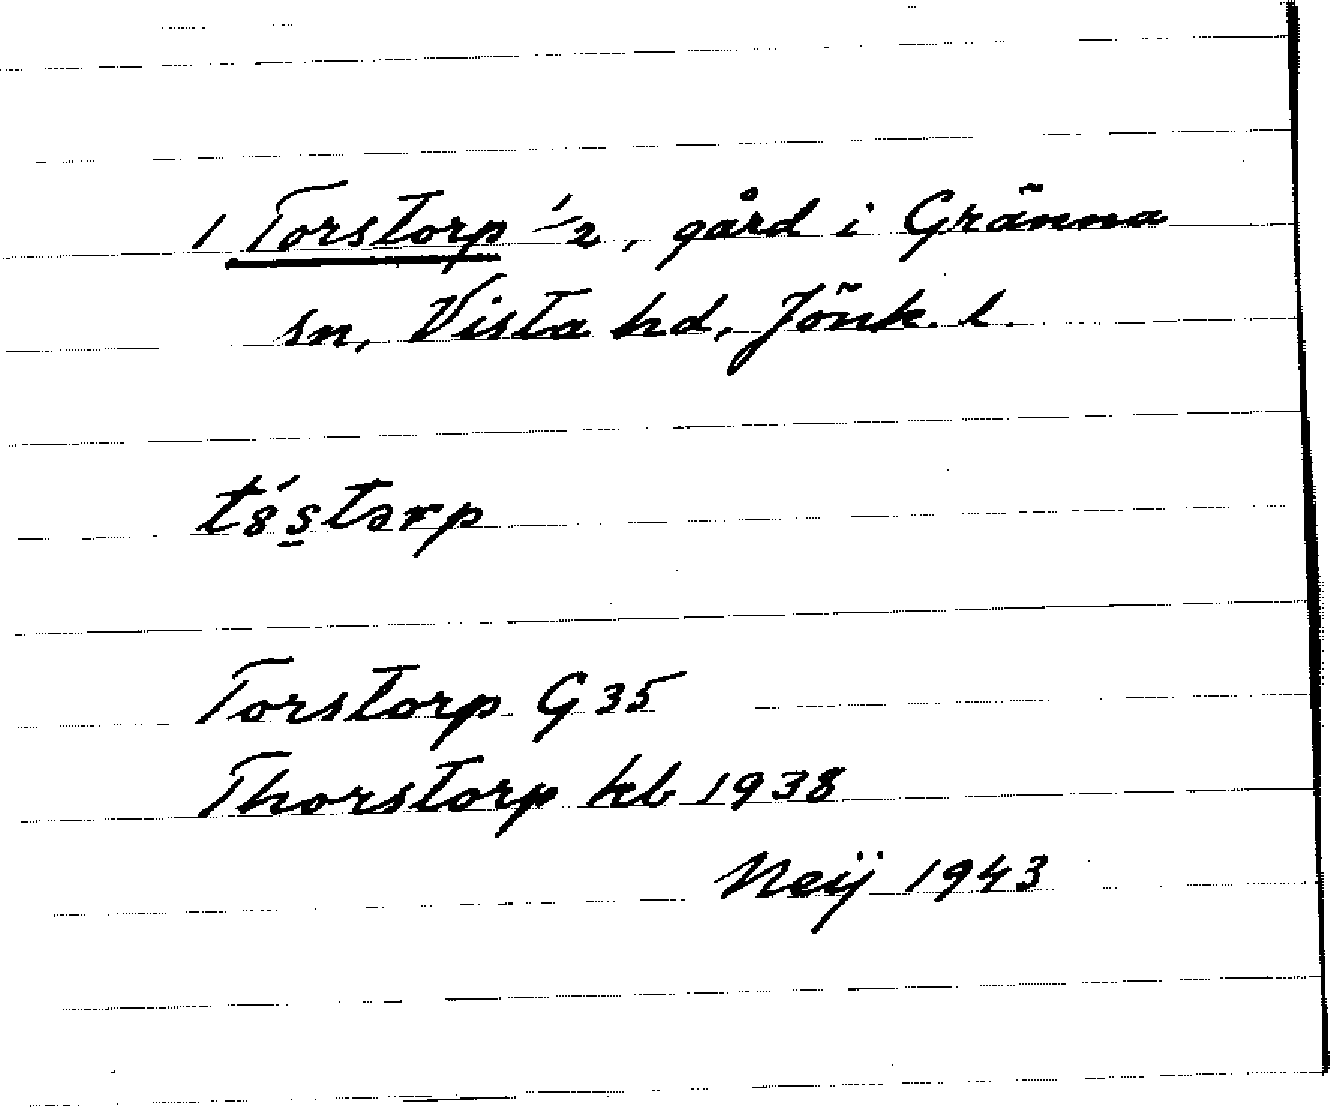 1 Torstorp 1/2, gård i Gränna
sn, Vista hd, Jönk. l.
Torstorp G 35
Thorstorp kb 1938
Neij 1943